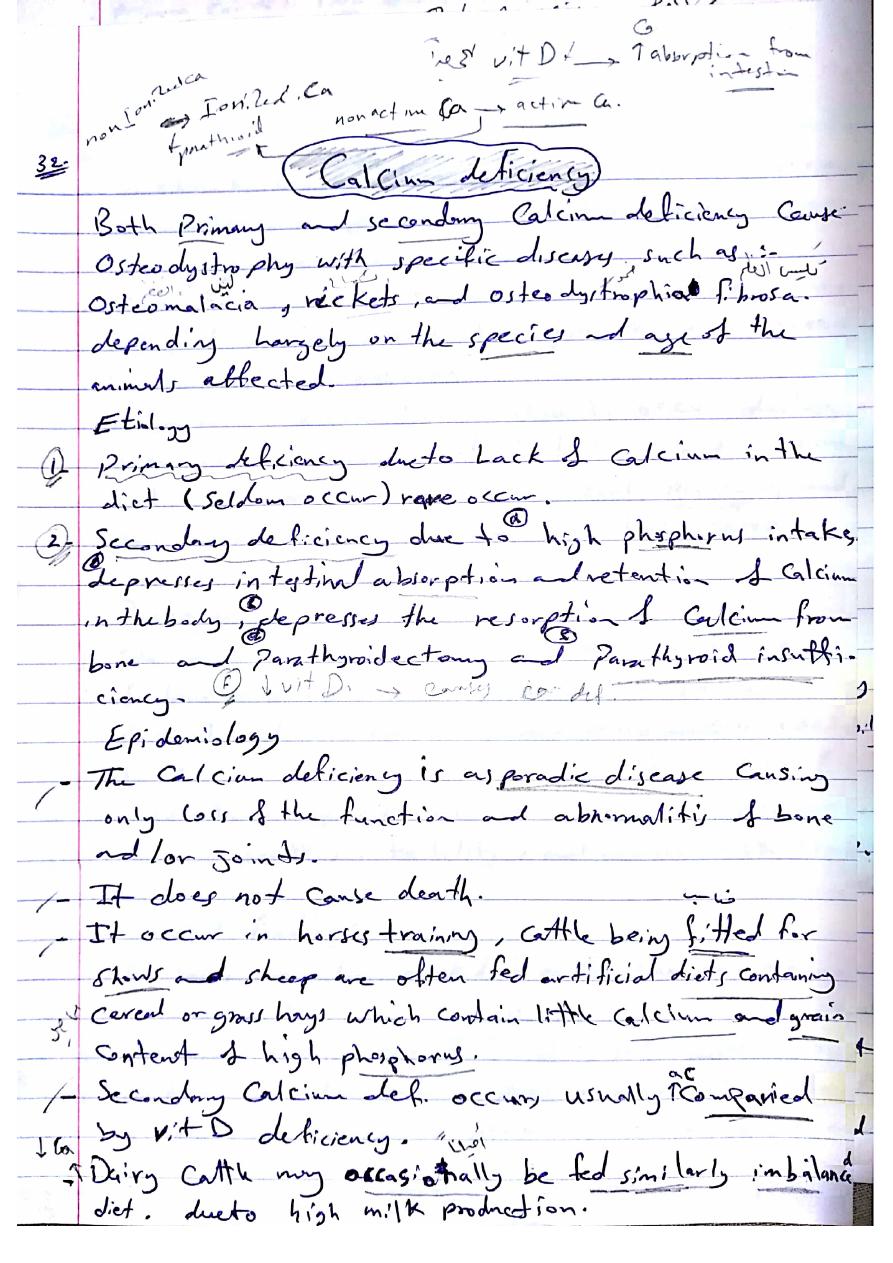 vit D↑ → ↑ absorption from
intestin
non Ionized Ca ↔ Ionized. Ca
non active Ca → active Ca.
parathroid
32-
Calcium deficiency
Both Primary and secondary Calcium deficiency Cause
Osteodystrophy with specific diseases such as :-
Osteomalacia, rickets, and osteodystrophia fibrosa.
depending largely on the species and age of the
animals affected.
Etiology
1- Primary deficiency dueto Lack of Calcium in the
diet (Seldom occur) rare occur.
2- Secondary deficiency due to (a) high phosphorus intake,
depresses intestinal absorption and retention of Calcium
in the body, (c) depresses the resorption of Calcium from
bone and (d) Parathyroidectomy and Parathyroid insuffi-
ciency. (F) ↓ vit D. → causes ca. def.
Epidemiology
- The Calcium deficiency is a sporadic disease Causing
only loss of the function and abnormalitis of bone
and/or joints.
- It does not Cause death.
- It occur in horses training, Cattle being fitted for
shows and sheep are often fed artificial diets contaning
cereal or grass hays which contain little calcium and grain
Content of high phosphorus.
- Secondary Calcium def. occurs usually accompanied
by vit D deficiency.
↓ Ca
Dairy Cattle may occasionally be fed similarly imbalanced
diet. dueto high milk production.